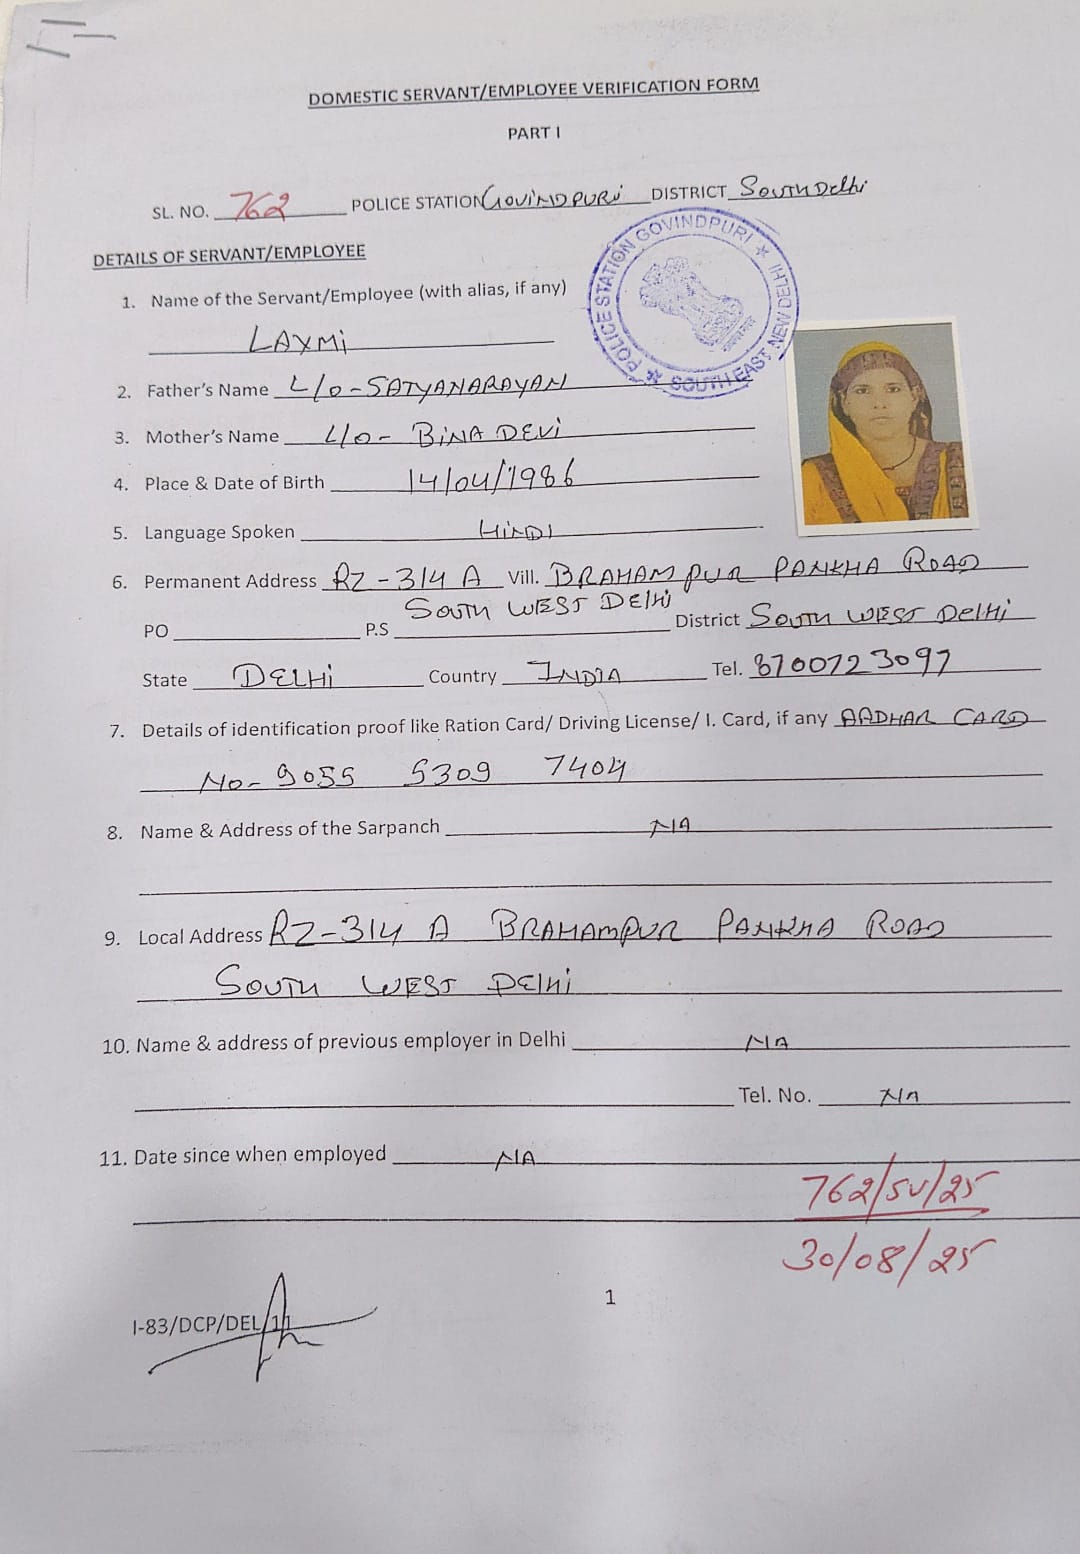 DOMESTIC SERVANT/EMPLOYEE VERIFICATION FORM
PART I
SL. NO. 762 POLICE STATION GOVINDPURi DISTRICT South Delhi
POLICE STATION GOVINDPURI ★ SOUTH EAST NEW DELHI ★
DETAILS OF SERVANT/EMPLOYEE
1. Name of the Servant/Employee (with alias, if any)
LAXMi
2. Father's Name L/o-SATYANARAYAN
3. Mother's Name L/o- BiNA DEVi
4. Place & Date of Birth 14/04/1986
5. Language Spoken HiNDI
6. Permanent Address RZ-314 A Vill. BRAHAMPUR PANKHA ROAD
PO P.S South WEST DElHi District South WEST DelHi
State DELHi Country INDIA Tel. 8700723097
7. Details of identification proof like Ration Card/ Driving License/ I. Card, if any AADHAR CARD
No- 9055 5309 7404
8. Name & Address of the Sarpanch NA
9. Local Address RZ-314 A BRAHAMPUR PANKHA ROAD
South WEST DElhi
10. Name & address of previous employer in Delhi NA
Tel. No. NA
11. Date since when employed NA
762/SV/25
30/08/25
1
I-83/DCP/DEL/11